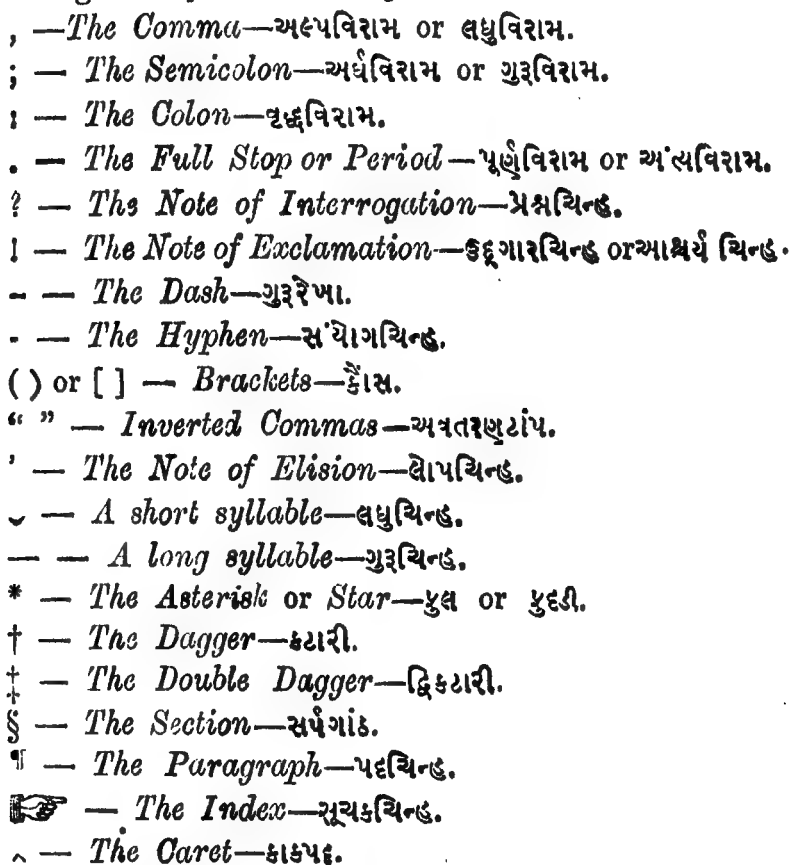 , —The Comma—અલ્પવિરામ or લઘુવિરામ.
; — The Semicolon—અર્ધવિરામ or ગુરૂવિરામ.
: — The Colon—વૃદ્ધવિરામ.
. — The Full Stop or Period—પૂર્ણવિરામ or અંત્યવિરામ.
? — The Note of Interrogation—પ્રશ્નચિન્હ.
! — The Note of Exclamation—ઉદ્ગારચિન્હ or આશ્ચર્ય ચિન્હ.
- — The Dash—ગુરૂરેખા.
- — The Hyphen—સંયોગચિન્હ.
( ) or [ ] — Brackets—કૈાંસ.
“ ” — Inverted Commas—અવતરણટાંપ.
’ — The Note of Elision—લોપચિન્હ.
⏑ — A short syllable—લઘુચિન્હ.
— — A long syllable—ગુરૂચિન્હ.
* — The Asterisk or Star—ફુલ or ફુદડી.
† — The Dagger—કટારી.
‡ — The Double Dagger—દ્વિકટારી.
§ — The Section—સર્પગાંઠ.
¶ — The Paragraph—પદચિન્હ.
☞ — The Index—સૂચકચિન્હ.
‸ — The Caret—કાકપદ.